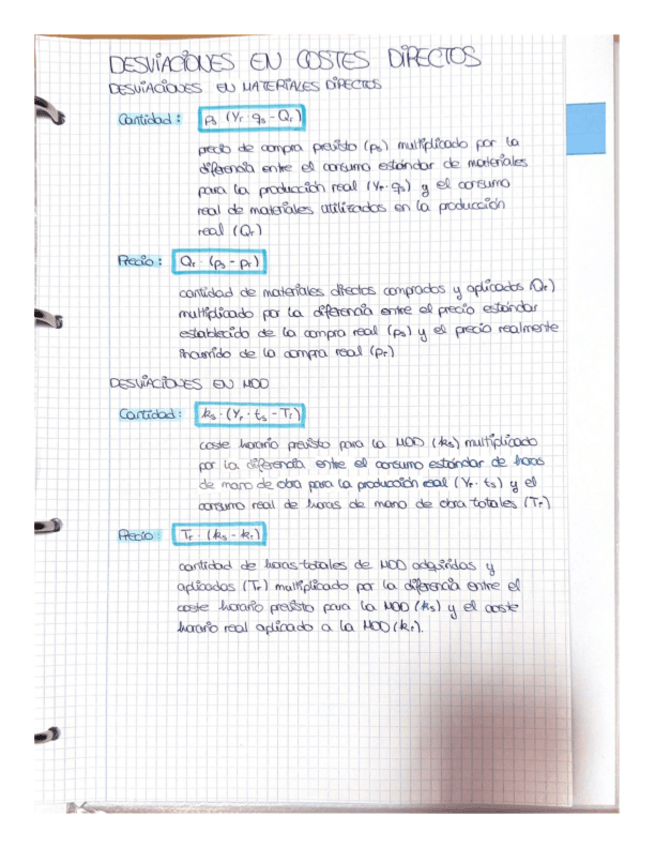 DESVIACIONES EN COSTES DIRECTOS
DESVIACIONES EN MATERIALES DIRECTOS
Cantidad: ps (Yr · qs - Qr)
precio de compra previsto (ps) multiplicado por la
diferencia entre el consumo estándar de materiales
para la producción real (Yr · qs) y el consumo
real de materiales utilizados en la producción
real (Qr)
Precio: Qr · (ps - pr)
cantidad de materiales directos comprados y aplicados (Qr)
multiplicado por la diferencia entre el precio estándar
establecido de la compra real (ps) y el precio realmente
incurrido de la compra real (pr)
DESVIACIONES EN MOD
Cantidad: ks · (Yr · ts - Tr)
coste horario previsto para la MOD (ks) multiplicado
por la diferencia entre el consumo estándar de horas
de mano de obra para la producción real (Yr · ts) y el
consumo real de horas de mano de obra totales (Tr)
Precio: Tr · (ks - kr)
cantidad de horas totales de MOD adquiridas y
aplicadas (Tr) multiplicado por la diferencia entre el
coste horario previsto para la MOD (ks) y el coste
horario real aplicado a la MOD (kr).